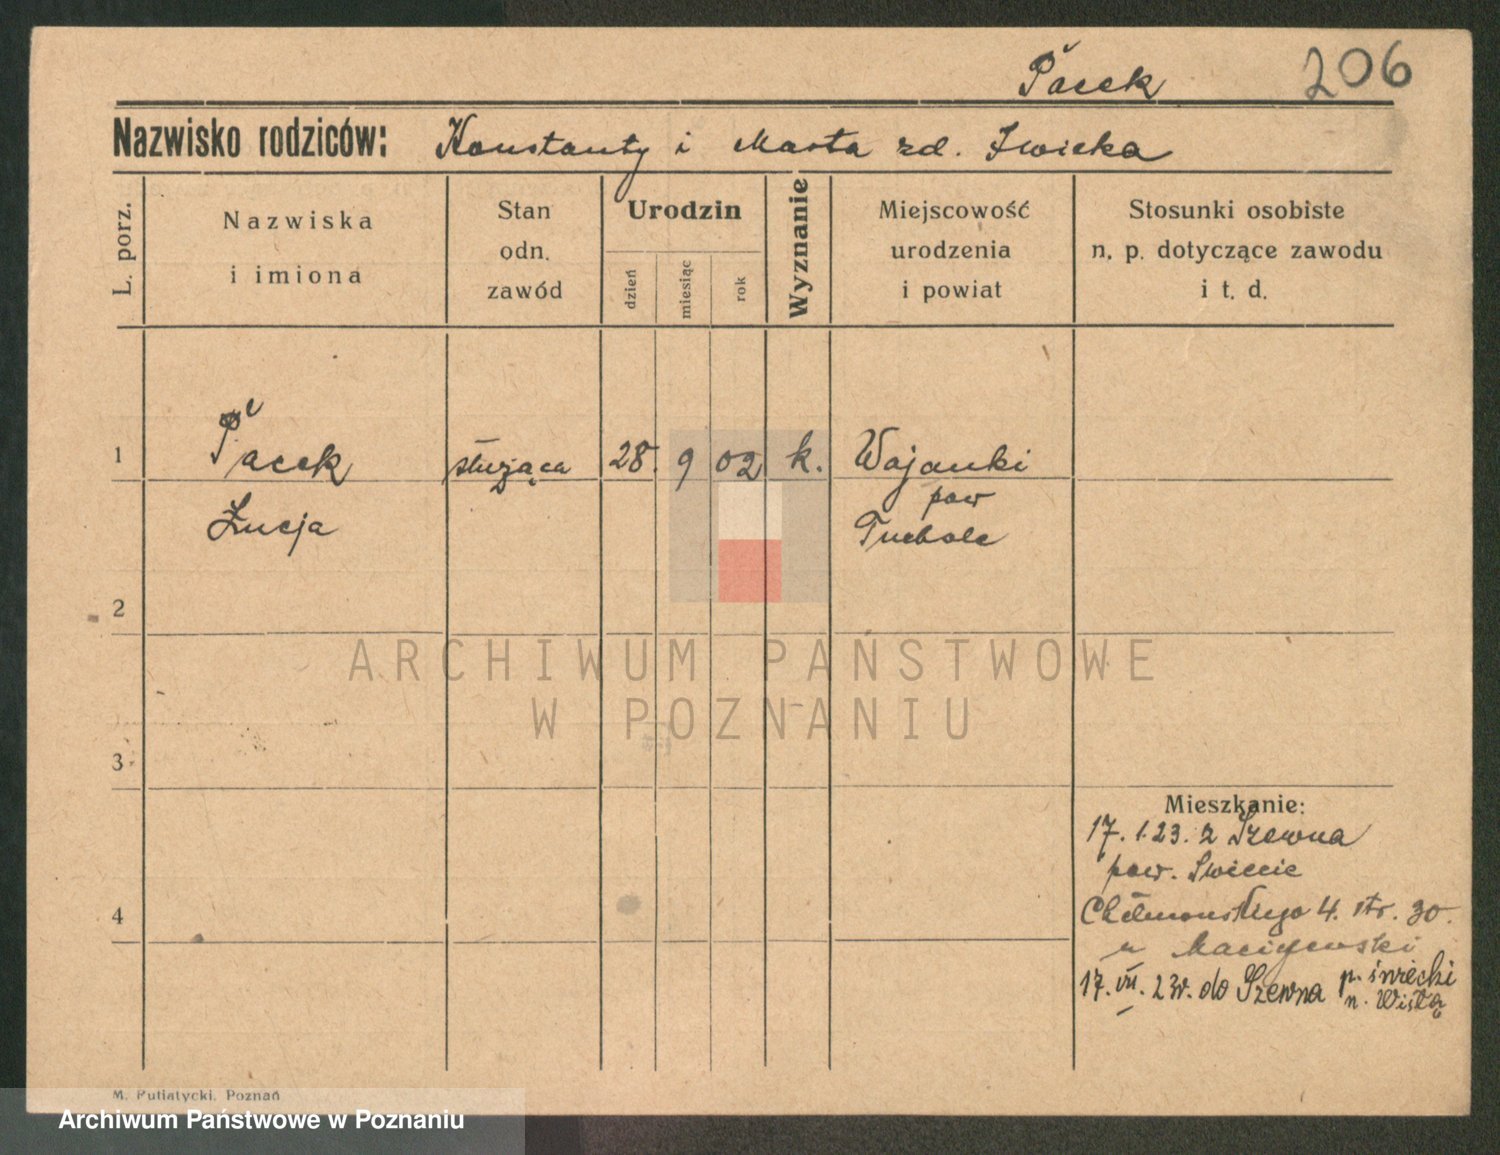 Pacek 206
Nazwisko rodziców: Konstanty i Marta rd. Zwicka
L. porz.
Nazwiska
i imiona
Stan
odn.
zawód
Urodzin
dzień
miesiąc
rok
Wyznanie
Miejscowość
urodzenia
i powiat
Stosunki osobiste
n. p. dotyczące zawodu
i t. d.
1 Pacek służąca 28. 9 02 k. Wojanki
pow
Łucja Tuchole
2
ARCHIWUM PAŃSTWOWE
W POZNANIU
3
Mieszkanie:
17. 1.23. z Szewna
pow. Świecie
4 Chełmońskiego 4. str. 30.
u Maciejewski
17. VII. 23r. do Szewna p. świecki
n. Wisłą
M. Putiatycki, Poznań
Archiwum Państwowe w Poznaniu